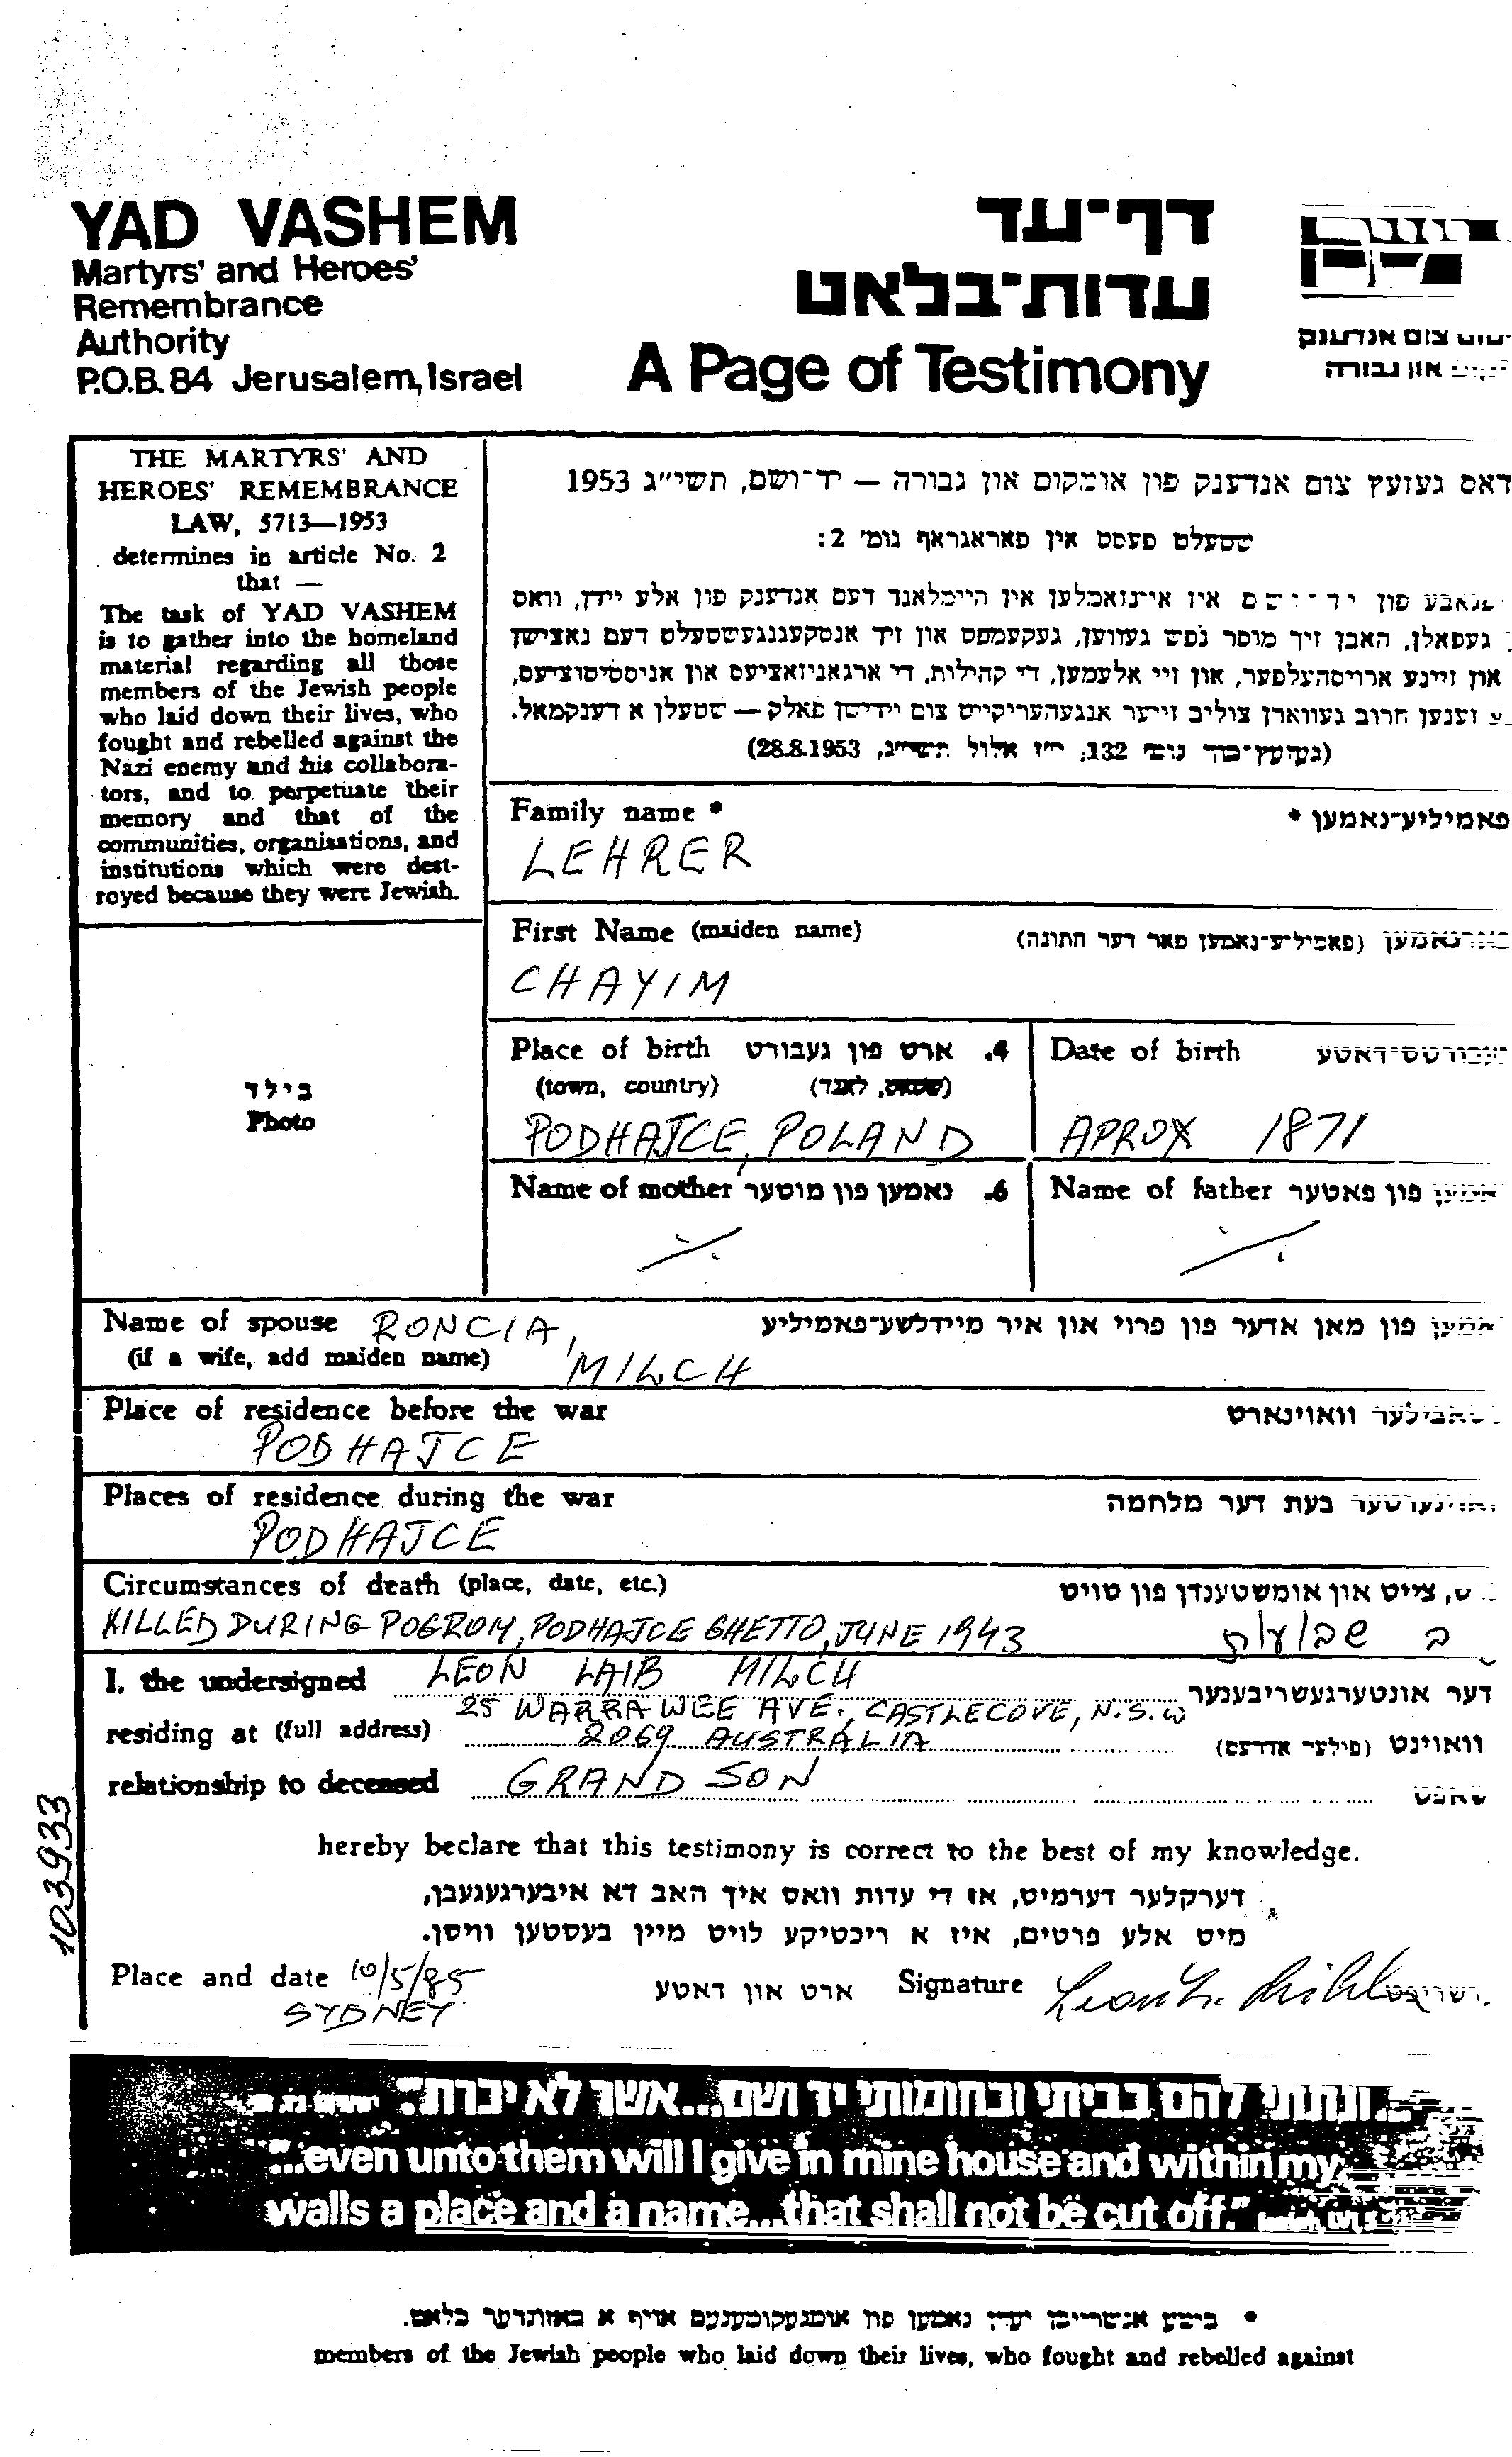 YAD VASHEM
Martyrs' and Heroes'
Remembrance
Authority
P.O.B. 84 Jerusalem, Israel
דף־עד
עדות־בלאט
A Page of Testimony
צום אנדענק
און גבורה
THE MARTYRS' AND
HEROES' REMEMBRANCE
LAW, 5713—1953
determines in article No. 2
that —
The task of YAD VASHEM
is to gather into the homeland
material regarding all those
members of the Jewish people
who laid down their lives, who
fought and rebelled against the
Nazi enemy and his collabora-
tors, and to perpetuate their
memory and that of the
communities, organisations, and
institutions which were dest-
royed because they were Jewish.
דאס געזעץ צום אנדענק פון אומקום און גבורה — יד־ושם, תשי״ג 1953
שטעלט פעסט אין פאראגראף נומ׳ 2:
פון יד־ושם איז איינזאמלען אין היימלאנד דעם אנדענק פון אלע יידן, וואס
געפאלן, האבן זיך מוסר נפש געווען, געקעמפט און זיך אנטקעגנגעשטעלט דעם נאצישן
און זיינע ארויסהעלפער, און זיי אלעמען, די קהילות, די ארגאניזאציעס און אניסטיטוציעס,
וענען חרוב געווארן צוליב זייער אנגעהעריקייט צום יידישן פאלק — שטעלן א דענקמאל.
(געזעץ־בוך נומ׳ 132, י״ז אלול תשי״ג, 28.8.1953)
Family name *
פאמיליע־נאמען *
LEHRER
First Name (maiden name)
(פאמיליע־נאמען פאר דער חתונה)
CHAYIM
Place of birth ארט פון געבורט .4
(town, country) (שטאט, לאנד)
PODHAJCE, POLAND
Date of birth געבורטס־דאטע
APROX 1871
Name of mother נאמען פון מוטער .6
Name of father נאמען פון פאטער
בילד
Photo
Name of spouse RONCIA,
נאמען פון מאן אדער פון פרוי און איר מיידלשע־פאמיליע
(if a wife, add maiden name) MILCH
Place of residence before the war
וואוינארט
PODHAJCE
Places of residence during the war
בעת דער מלחמה
PODHAJCE
Circumstances of death (place, date, etc.)
צייט און אומשטענדן פון טויט
KILLED DURING POGROM, PODHAJCE GHETTO, JUNE 1943
ב שבועות
I, the undersigned LEON LAIB MILCH
דער אונטערגעשריבענער
25 WARRAWEE AVE., CASTLECOVE, N.S.W
residing at (full address) 2069 AUSTRALIA
וואוינט (פילער אדרעס)
relationship to deceased GRAND SON
hereby beclare that this testimony is correct to the best of my knowledge.
דערקלער דערמיט, אז די עדות וואס איך האב דא איבערגעגעבן,
מיט אלע פרטים, איז א ריכטיקע לויט מיין בעסטען וויסן.
Place and date 10/5/85
ארט און דאטע
Signature
SYDNEY
103933
"...ונתתי להם בביתי ובחומותי יד ושם...אשר לא יכרת".
"...even unto them will I give in mine house and within my
walls a place and a name...that shall not be cut off."
* ביטע אנשרייבן יעדן נאמען פון אומגעקומענעם אויף א באזונדער בלאט.
members of the Jewish people who laid down their lives, who fought and rebelled against